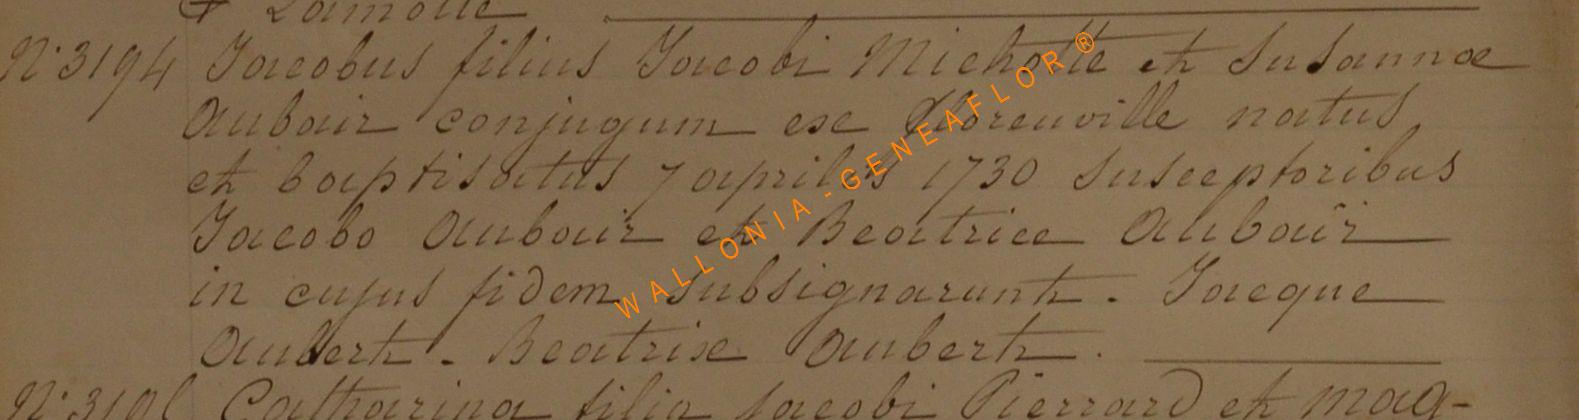 & Lamotte
N° 3194 Jacobus filius Jacobi Michotte et Susannae
Aubair conjugum ex Florenville natus
et baptisatus 7 aprilis 1730 susceptoribus
Jacobo Aubair et Beatrice Aubair
in cujus fidem subsignarunt. Jacque
Aubert. Beatrise Aubert.
Catharina filia Jacobi Pierrard et Mag-
WALLONIA-GENEAFLOR®